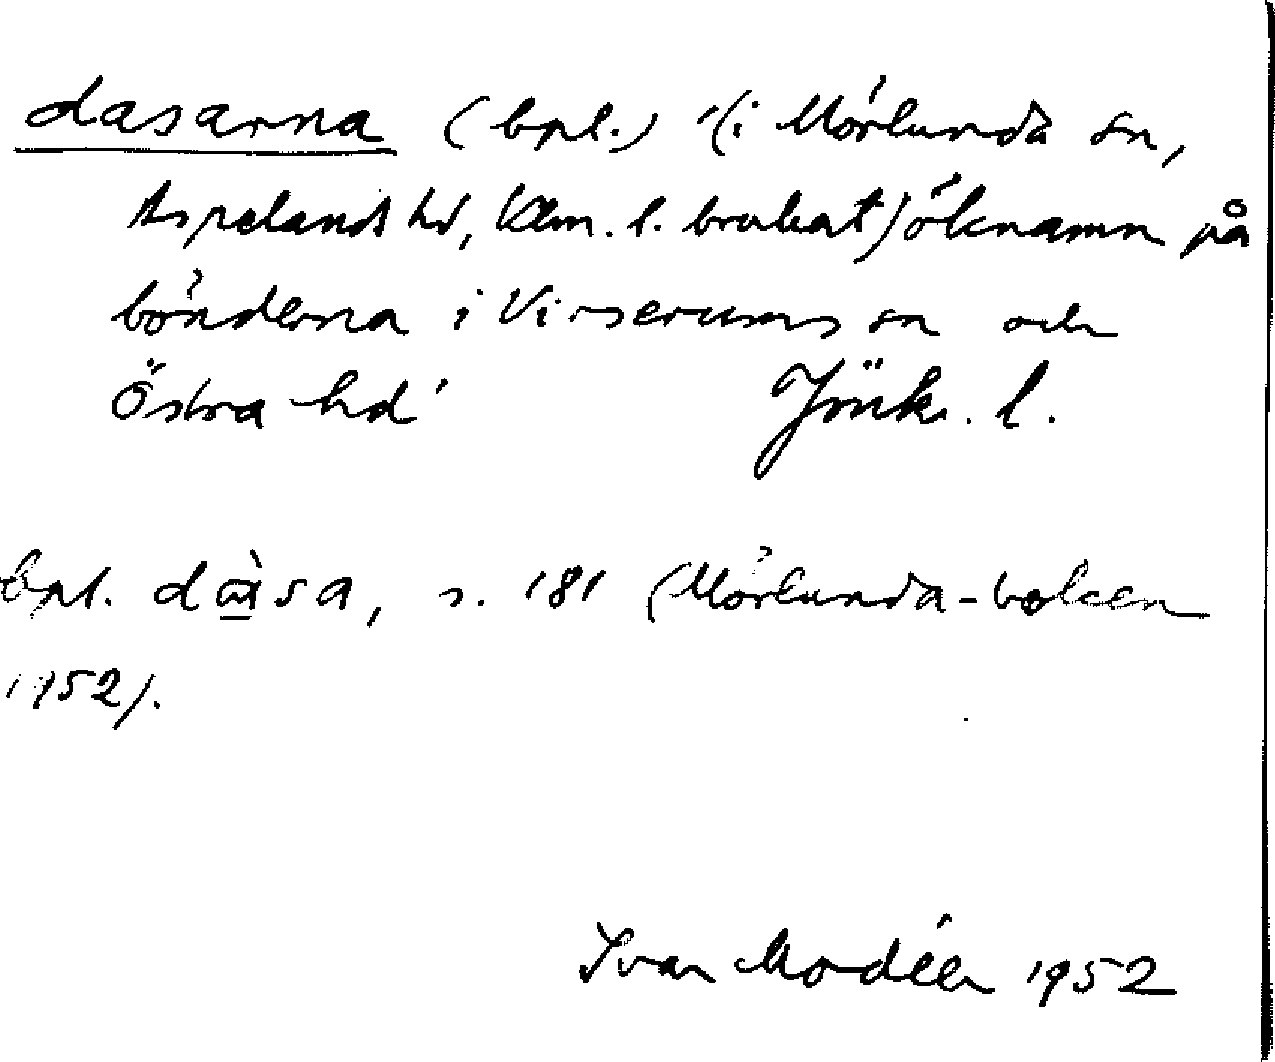 dasarna (bpl.) '(i Mörlunda sn,
Aspelands hd, Klm. l. brukat) öknamn på
bönderna i Virserums sn och
Östra hd' Jönk. l.
bpl. dàsa, s. 181 (Mörlunda-boken
1952).
Ivar Modéer 1952